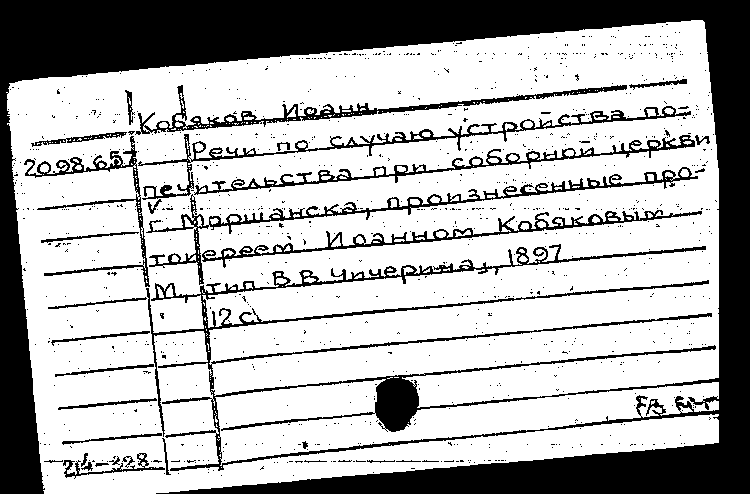 Кобяков, Иоанн.
20.98.657
Речи по случаю устройства по-
печительства при соборной церкви
г. Моршанска, произнесенные про-
тоиереем Иоанном Кобяковым.
М., тип В.В. Чичерина, 1897
12 с.
214-328